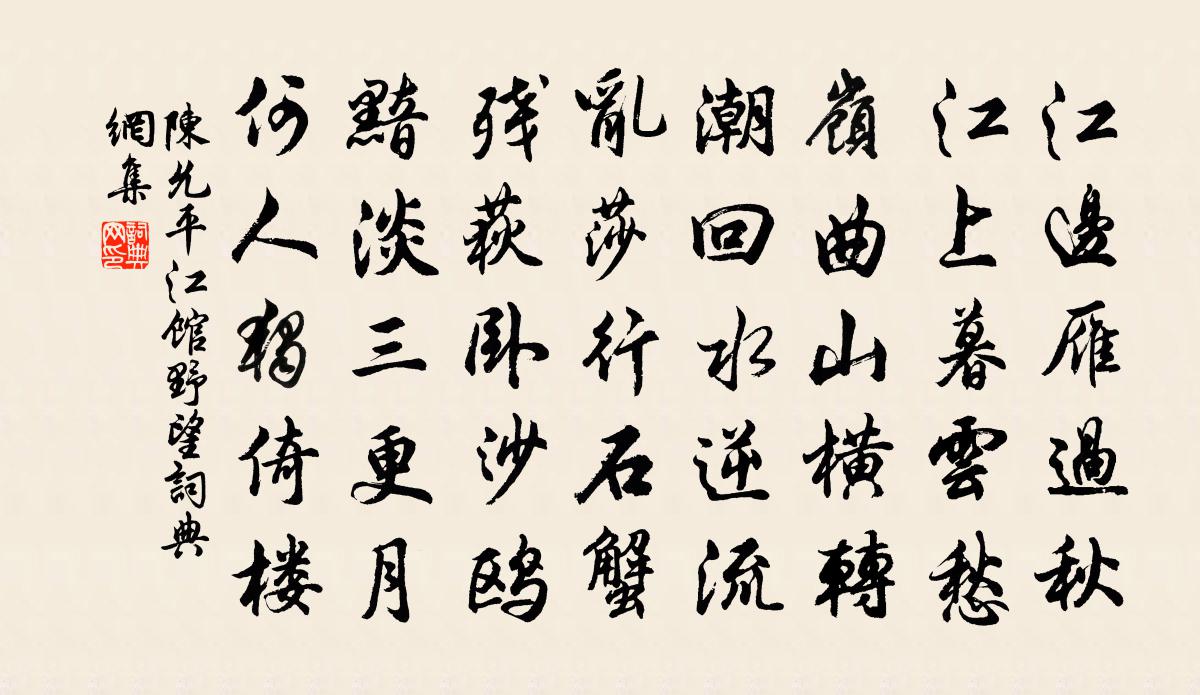 江邊雁過秋
江上暮雲愁
嶺曲山橫轉
潮回水逆流
亂莎行石蟹
残荻臥沙鸥
黯淡三更月
何人獨倚楼
陳允平江館野望詞典
網集
詞典
网印